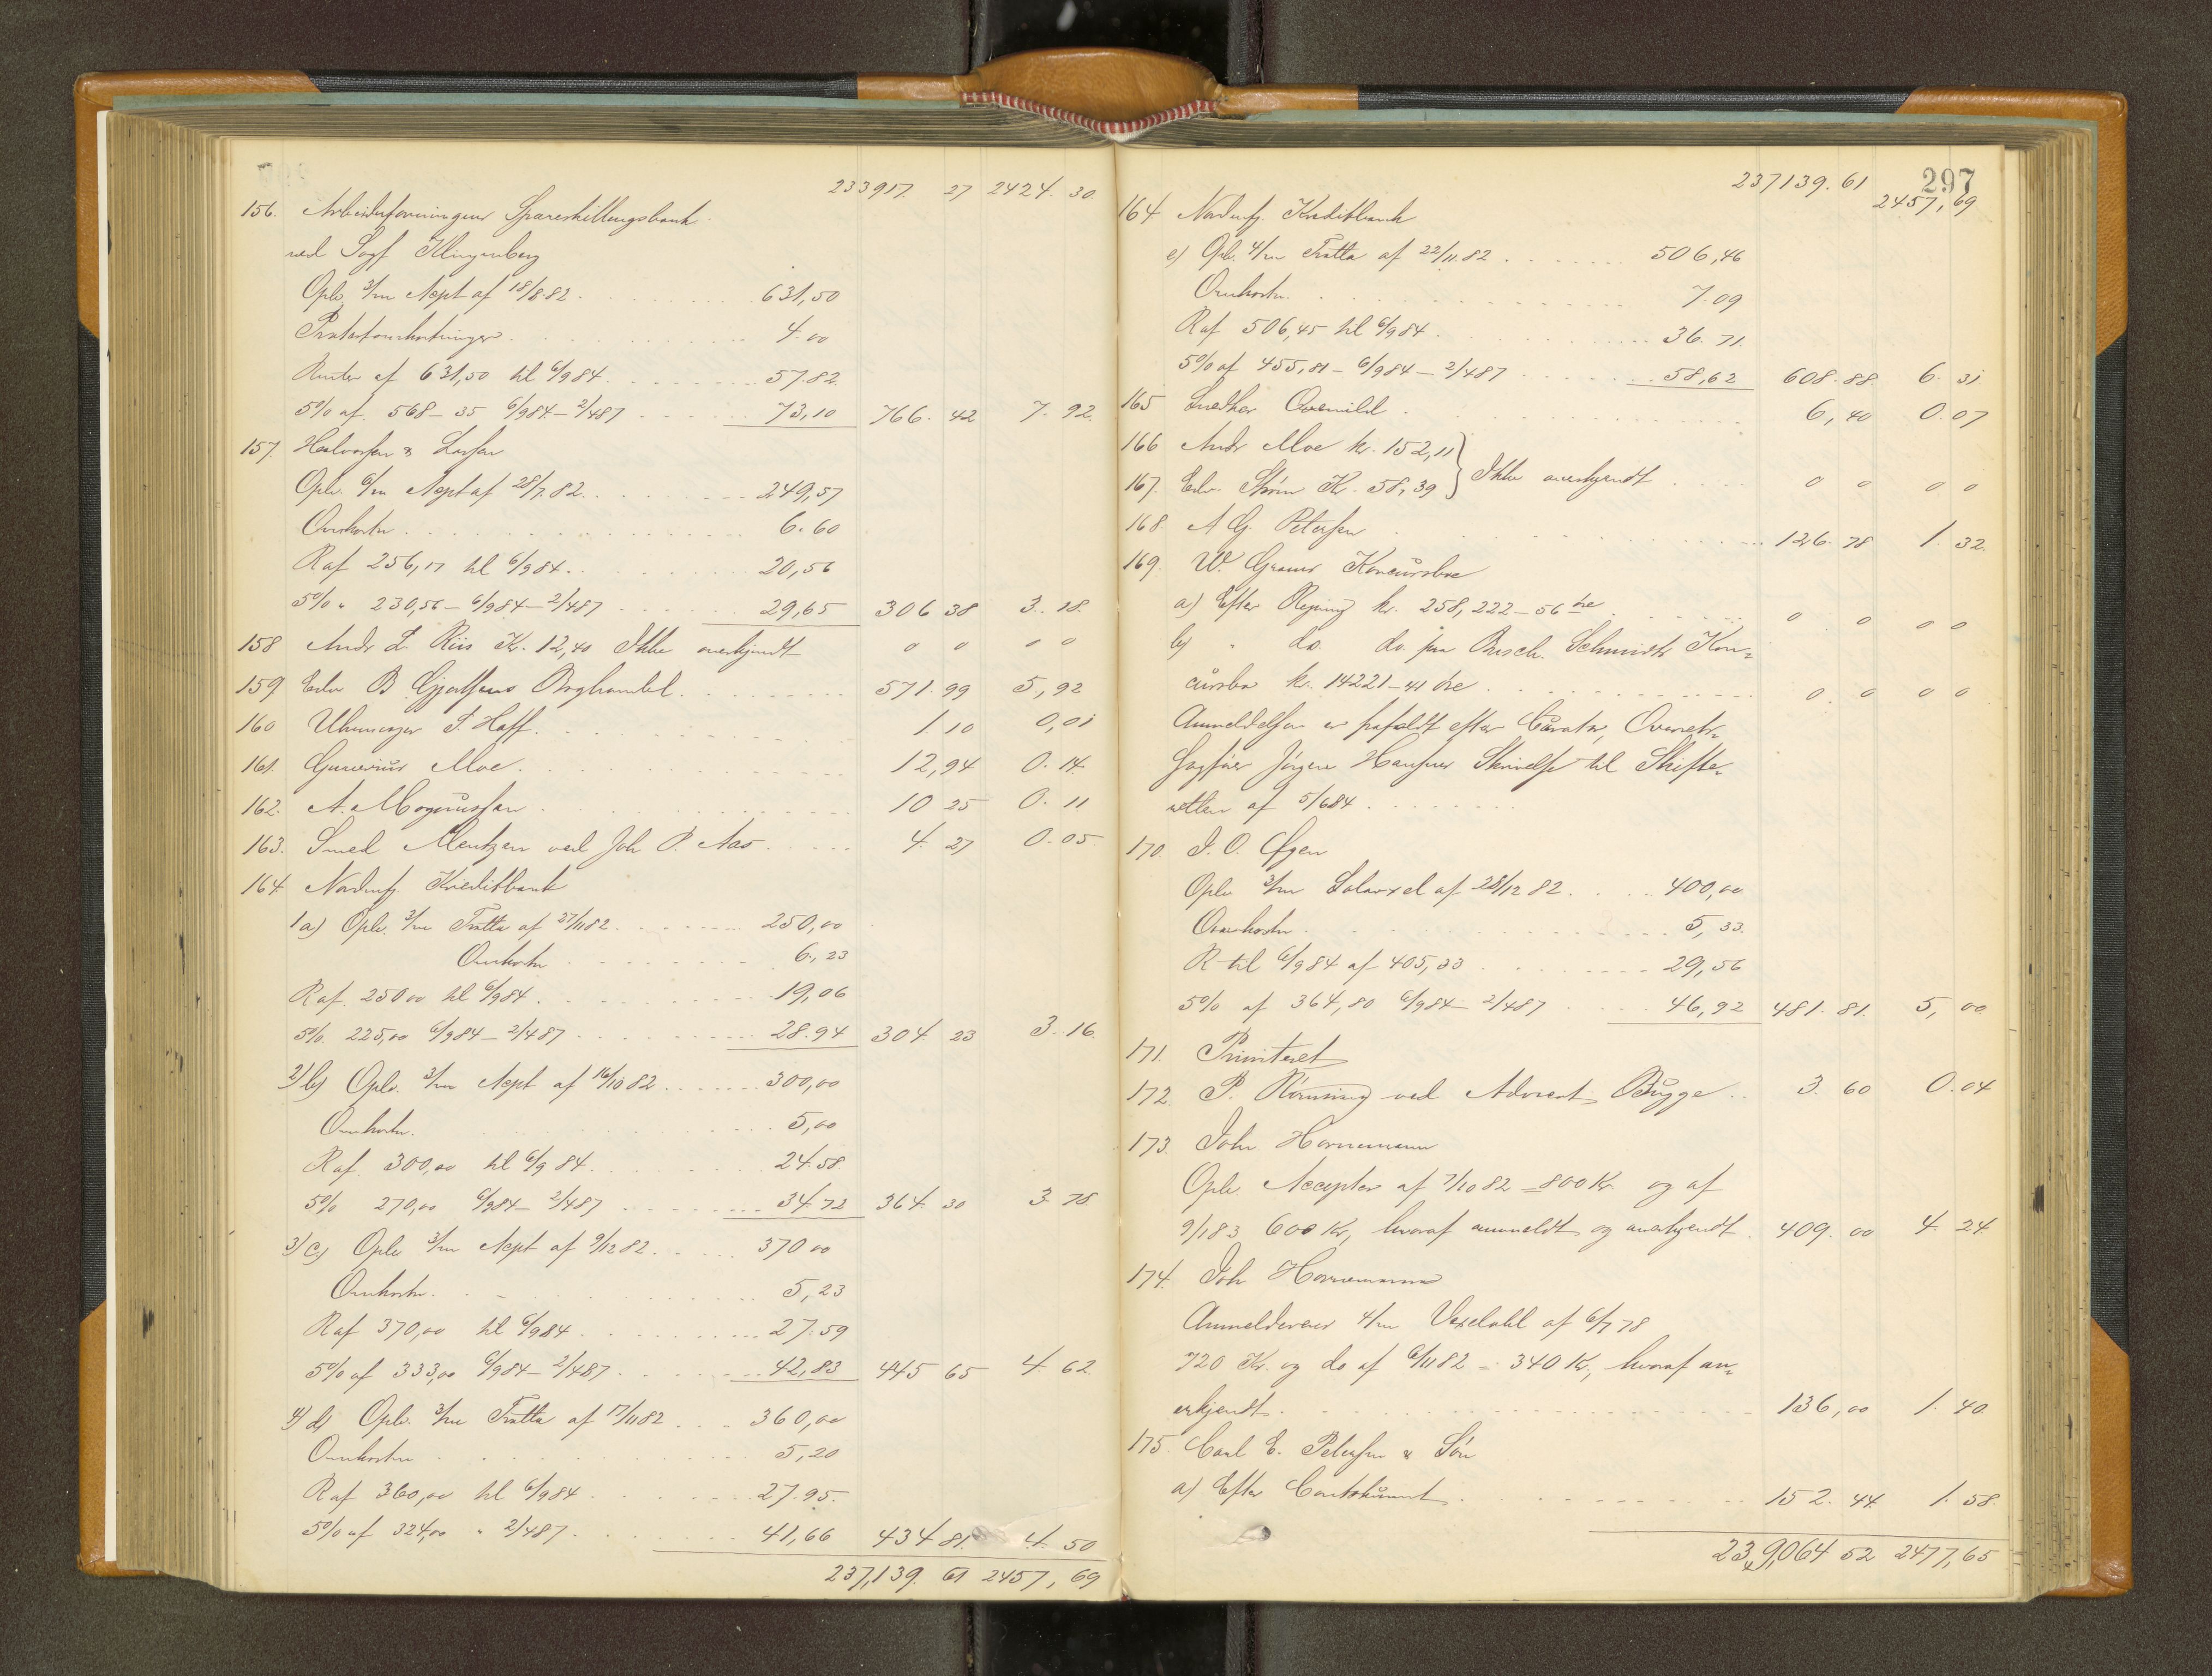 233917. 27 2424. 30.
156. Arbeiderforeningens Spareskillingsbank
ved Sagf Klingenberg
Oplr 3/m Acpt af 18/8 82 . . . 631,50
Protestomkostninger . . . 4.00
Renter af 631,50 til 6/9 84 . . . 57.82.
5% af 568-35 6/9 84 - 2/4 87 . . . 73,10 766. 42 7. 92.
157. Halvorsen & Larsen
Oplr. 6/m Acpt af 28/7. 82 . . . 249,57
Omkostn . . . 6.60
R af 256,17 til 6/9 84 . . . 20,56
5% " 230,56 - 6/9 84 - 2/4 87 . . . 29,65 306 38 3. 18.
158 Andr L. Riis Kr. 12,40 Ikke anerkjendt 0 0 0 0
159 Enke B Gjertsens Boghandel . . . 571. 99 5,92
160 Uhrmager T. Hoff . . . 1. 10 0,01
161. Gunerius Moe . . . 12,94 0. 14.
162. A. Magnussen . . . 10 25 0. 11
163. Smed Mentzen ved Joh P. Aas . . . 4. 27 0.05.
164. Nordenfj. Kreditbank
1 a) Oplr. 3/m Tratta af 27/11 82 . . . 250,00
Omkostn . . . 6,23
R af. 250 00 til 6/9 84 . . . 19,06
5% 225,00 6/9 84 - 2/4 87 . . . 28.94 304. 23 3. 16.
2) b) Oplr. 3/m Acpt af 16/10 82 . . . 300,00
Omkostn. . . . 5,00
R af. 300,00 til 6/9 84 . . . 24.58.
5% 270,00 6/9 84 - 2/4 87 . . . 34.72 364. 30 3. 78.
3) c) Oplr 3/m Acpt af 9/12 82 . . . 370 00
Omkostn . . . 5,23
R af 370,00 til 6/9 84 . . . 27.59
5% af 333,00 6/9 84 - 2/4 87 . . . 42,83 445 65 4. 62.
4) d) Oplr. 3/m Tratta af 17/11 82 . . . 360,00
Omkostn . . . 5,20
R af 360,00 til 6/9 84 . . . 27.95.
5% af 324,00 " 2/4 87 . . . 41,66 434 81. 4. 50
237,139. 61 2457, 69
237139. 61 297
2457,69
164. Nordenfj. Kreditbank
e) Oplr. 4/m Tratta af 22/11. 82 . . . 506,46
Omkostn. . . . 7.09
R af 506,45 til 6/9 84 . . . 36. 71.
5% af 455,81 - 6/9 84 - 2/4 87 . . . 58,62 608. 88. 6. 31
165 Snedker Qvenild . . . 6,40 0.07
166 Andr Moe kr. 152,11 } Ikke anerkjendt . . . 0 0 0 0
167. Enke Strøm Kr. 58,39
168. A G. Petersen . . . 126. 78 1. 32.
169. W. Grams Koncursbo
a) Efter Regning kr. 258,222-56 øre . . . 0 0 0 0
b) " do. do. paa Busch. Schmidts Kon-
cursbo kr. 14221-41 øre . . . 0. 0 0 0
Anmeldelsen er frafaldt efter Curator, Overrets-
sagfører Jørgen Hansens Skrivelse til Skifte-
retten af 5/6 84 . . .
170. I. O. Øyen
Oplr 3/m Solavexel af 28/12 82 . . . 400,00
Omkostn . . . 5,33.
R til 6/9 84 af 405,33 . . . 29,56
5% af 364,80 6/9 84 - 2/4 87 . . . 46,92 481. 81. 5,00
171. Prioriteret
172. P. Rønning ved Advocat Bugge . . 3. 60 0.04
173. John Hornemann
Oplr. Accepter af 7/10 82 = 800 Kr og af
9/1 83 600 Kr, hvoraf anmeldt og anerkjendt . 409. 00 4. 24.
174. Joh Hornemann
Anmelderens 4/m Vexelobl af 6/7 78
720 Kr. og do af 6/11 82 = 340 Kr, hvoraf an-
erkjendt . . . 136,00 1. 40.
175. Carl E. Petersen & Søn
a) Efter Contokurant . . . 152. 44. 1. 58.
239,064 52 2477,65